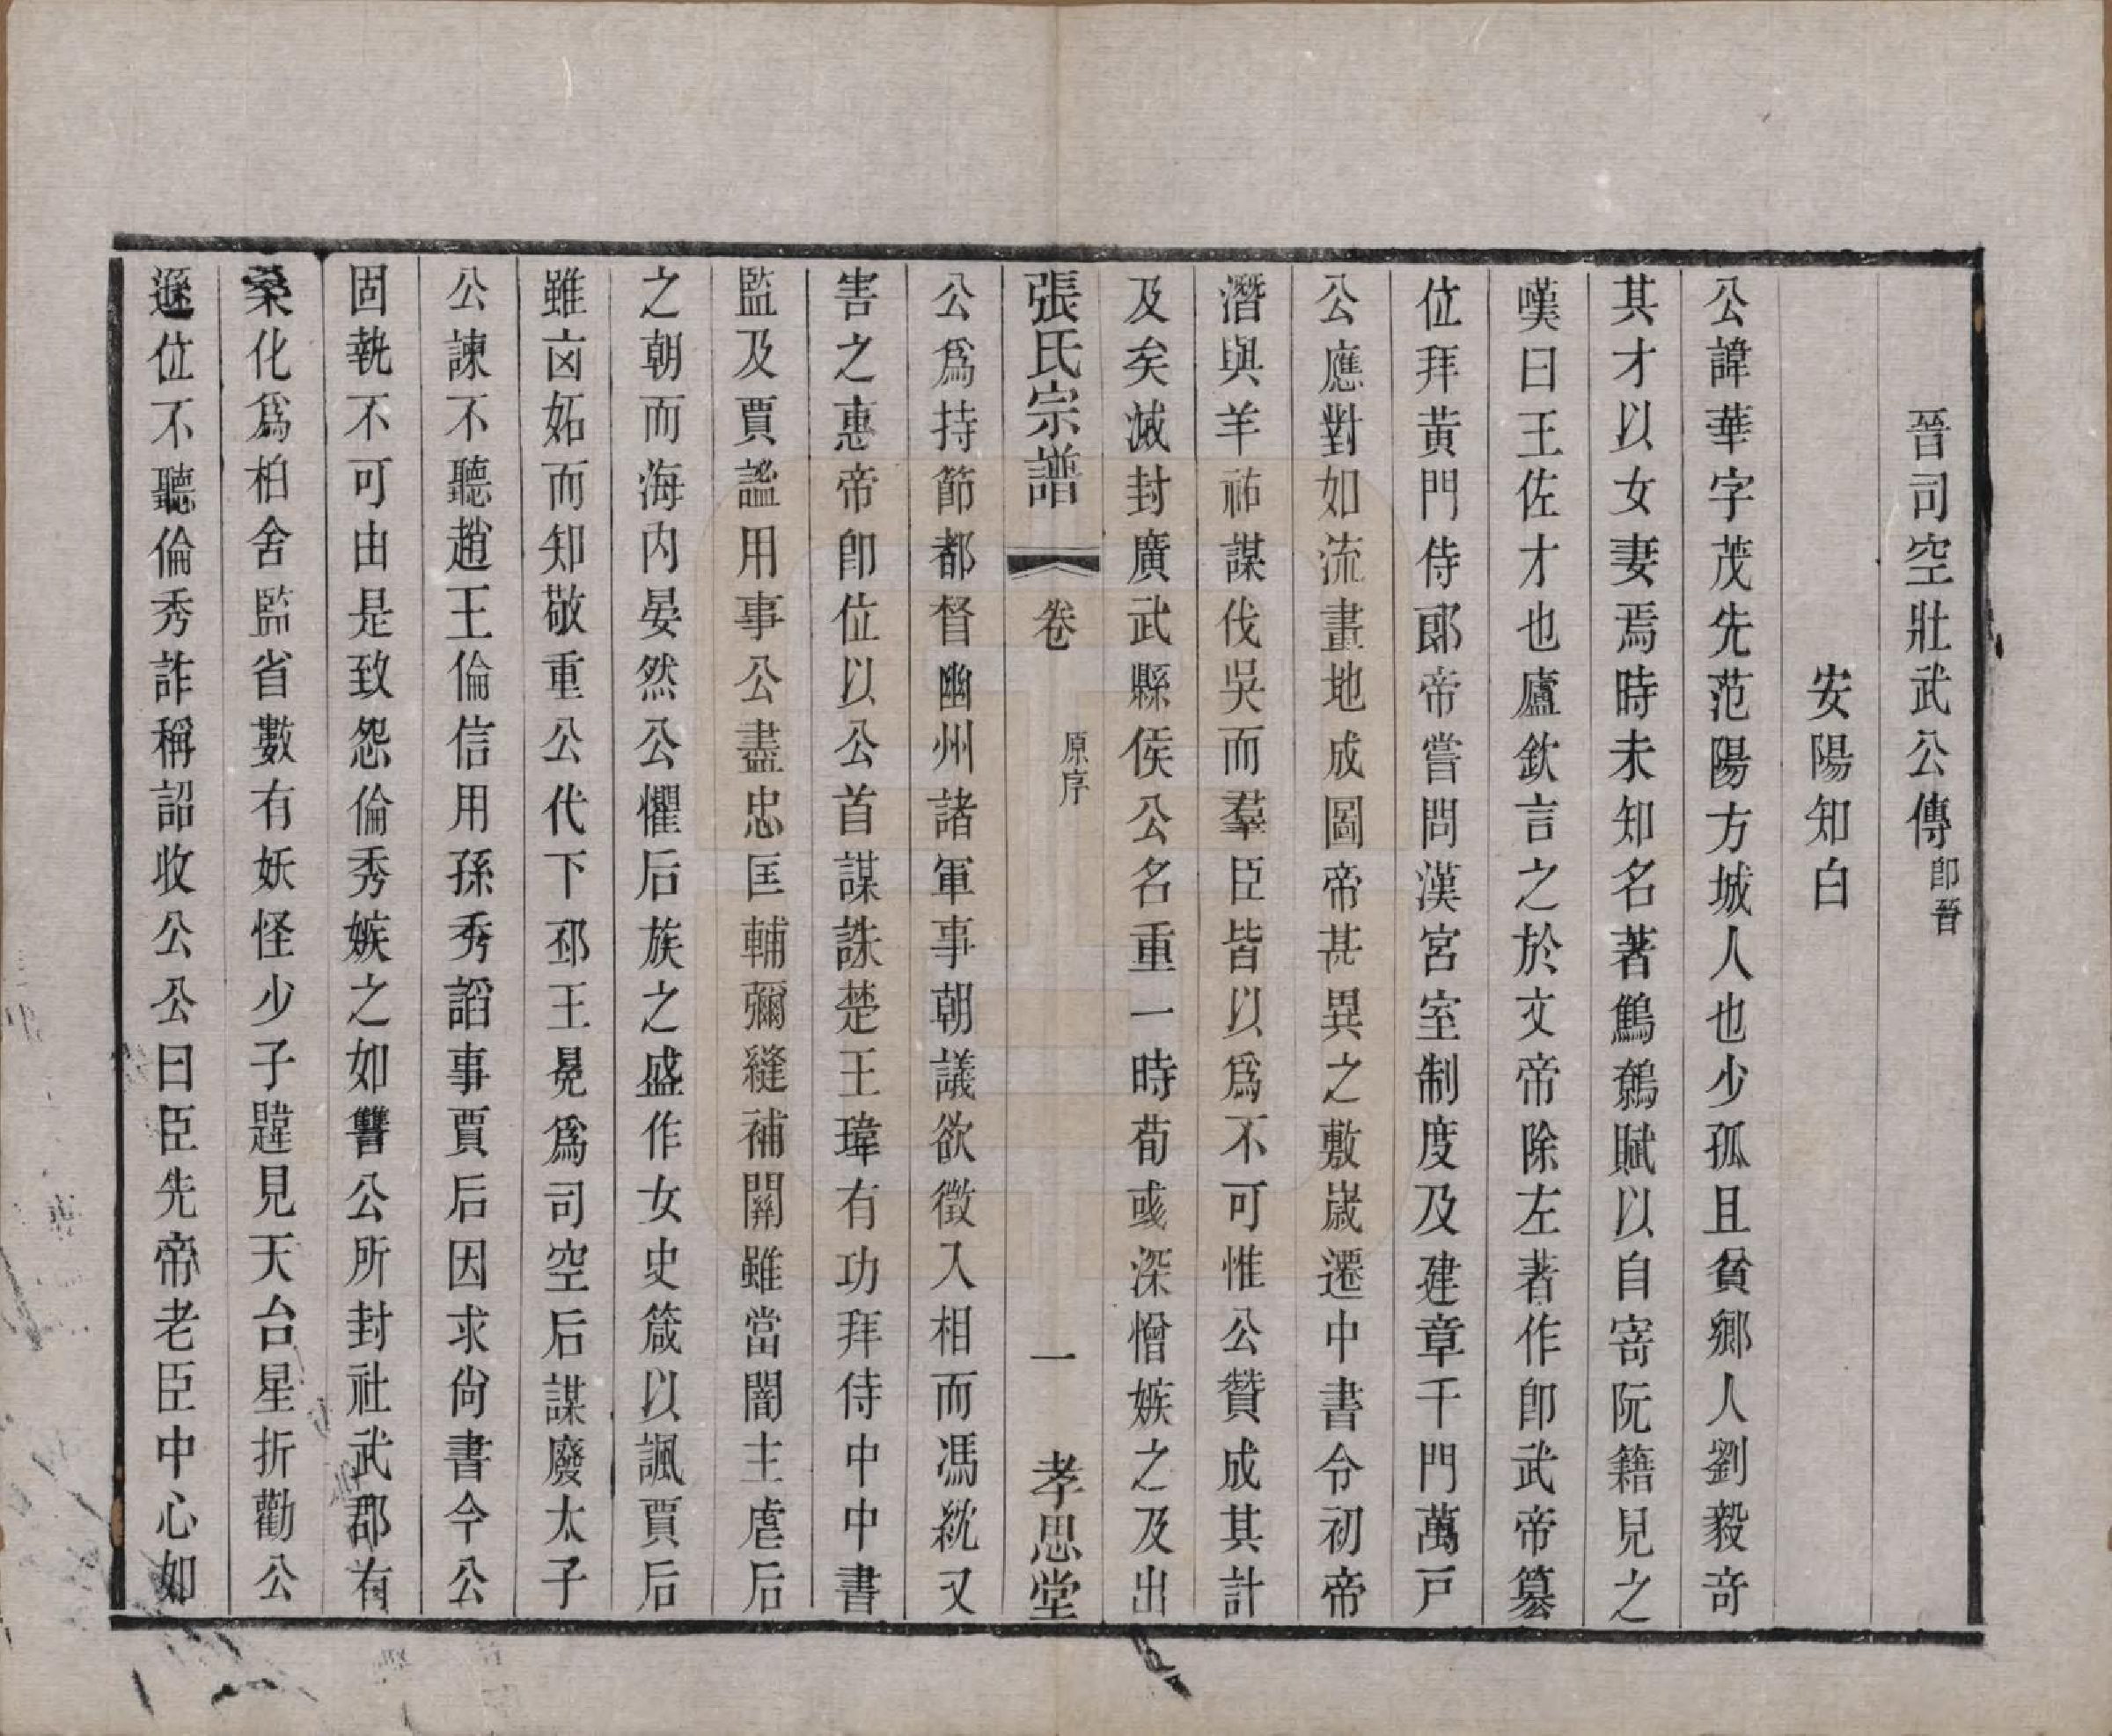 晉司空壯武公傳卽晉
安陽知白
公諱華字茂先范陽方城人也少孤且貧鄉人劉毅竒
其才以女妻焉時未知名著鷦鷯賦以自寄阮籍見之
嘆曰王佐才也廬欽言之於文帝除左著作卽武帝篡
位拜黃門侍郞帝嘗問漢宮室制度及建章千門萬戸
公應對如流畫地成圖帝甚異之敷嵗遷中書令初帝
潛與羊祜謀伐吳而羣臣皆以爲不可惟公贊成其計
及矣滅封廣武縣侯公名重一時荀彧深憎嫉之及出
張氏宗譜 卷 原序 一 孝思堂
公爲持節都督幽州諸軍事朝議欲徵入相而馮紞又
害之惠帝卽位以公首謀誅楚王瑋有功拜侍中中書
監及賈謐用事公盡忠匡輔彌縫補闕雖當闇主虐后
之朝而海内晏然公懼后族之盛作女史箴以諷賈后
雖凶妬而知敬重公代下邳王晃爲司空后謀廢太子
公諫不聽趙王倫信用孫秀謟事賈后因求尙書今公
固執不可由是致怨倫秀嫉之如讐公所封社武郡有
桑化爲柏舍監省數有妖怪少子韙見天台星折勸公
遜位不聽倫秀詐稱詔收公公曰臣先帝老臣中心如